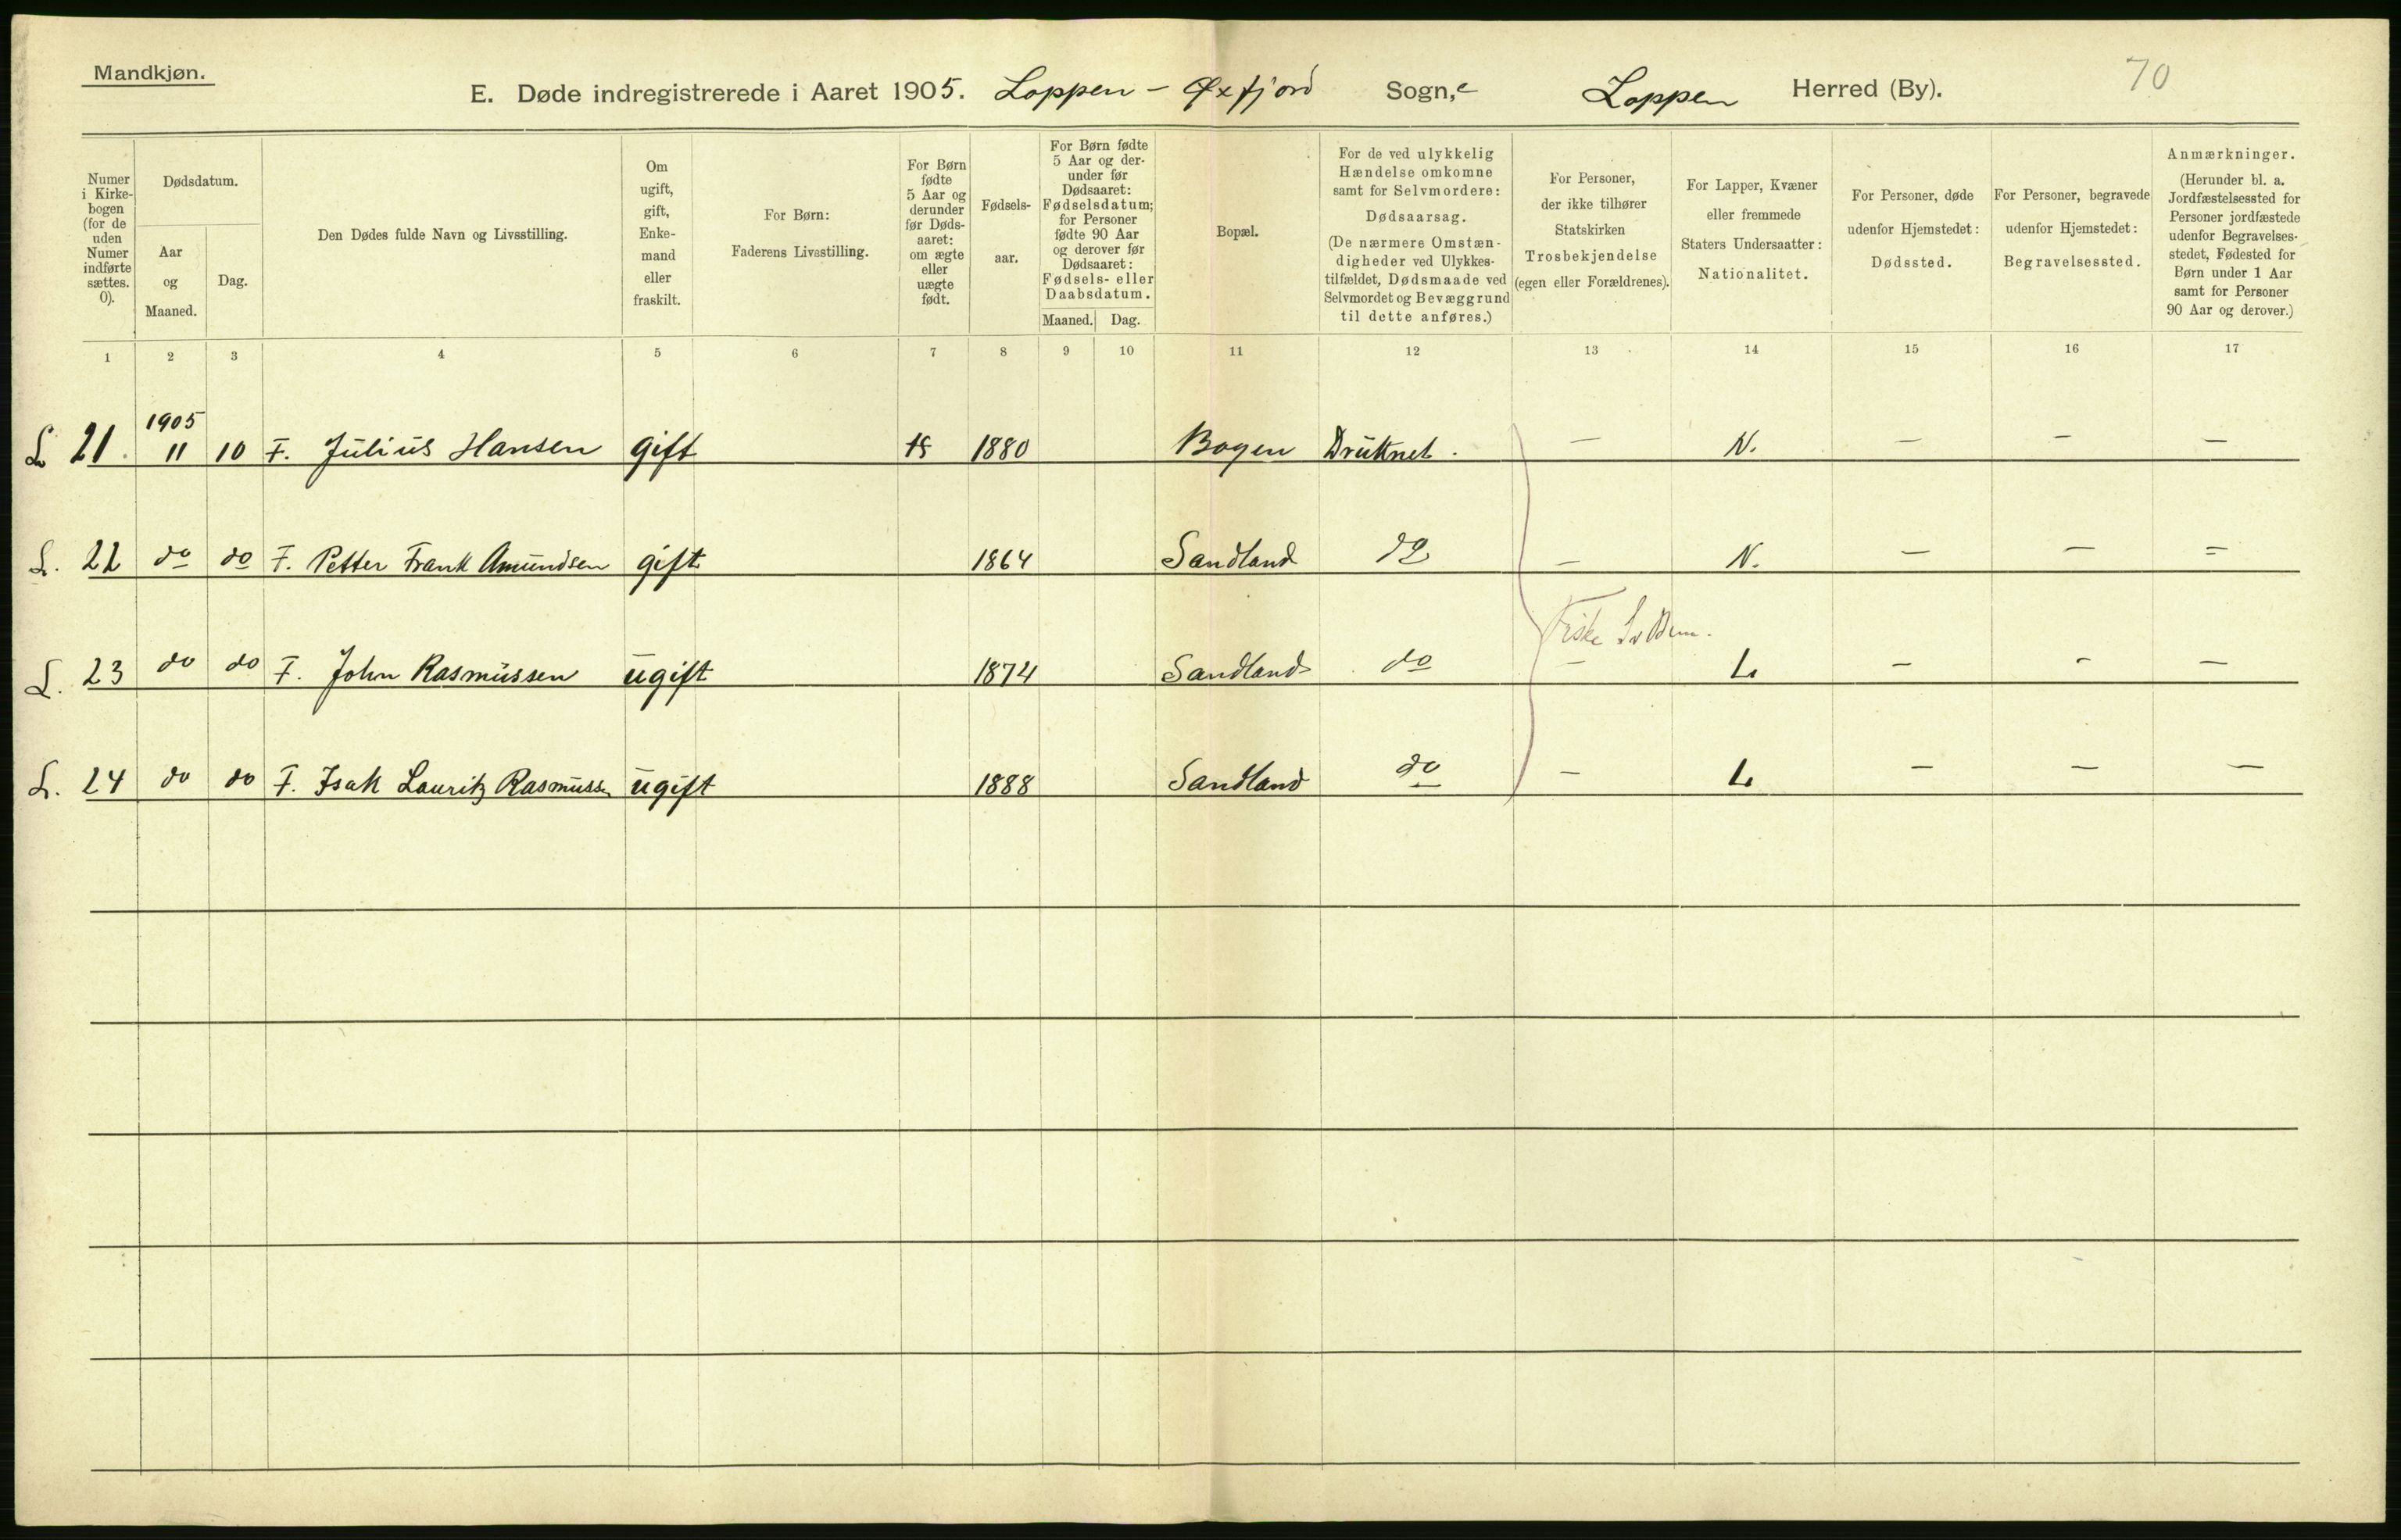 Mandkjøn.
E. Døde indregistrerede i Aaret 1905. Loppen - Øxfjord Sogn,e Loppen Herred (By). 70
Numer
i Kirke-
bogen
(for de
uden
Numer
indførte
sættes.
0).
Dødsdatum.
Aar
og
Maaned.
Dag.
Den Dødes fulde Navn og Livsstilling.
Om
ugift,
gift,
Enke-
mand
eller
fraskilt.
For Børn:
Faderens Livsstilling.
For Børn
fødte
5 Aar og
derunder
før Døds-
aaret:
om ægte
eller
uægte
født.
Fødsels-
aar.
For Børn fødte
5 Aar og der-
under før
Dødsaaret:
Fødselsdatum;
for Personer
fødte 90 Aar
og derover før
Dødsaaret:
Fødsels- eller
Daabsdatum.
Maaned. Dag.
Bopæl.
For de ved ulykkelig
Hændelse omkomne
samt for Selvmordere:
Dødsaarsag.
(De nærmere Omstæn-
digheder ved Ulykkes-
tilfældet, Dødsmaade ved
Selvmordet og Bevæggrund
til dette anføres.)
For Personer,
der ikke tilhører
Statskirken
Trosbekjendelse
(egen eller Forældrenes).
For Lapper, Kvæner
eller fremmede
Staters Undersaatter:
Nationalitet.
For Personer, døde
udenfor Hjemstedet:
Dødssted.
For Personer, begravede
udenfor Hjemstedet:
Begravelsessted.
Anmærkninger.
(Herunder bl. a.
Jordfæstelsessted for
Personer jordfæstede
udenfor Begravelses-
stedet, Fødested for
Børn under 1 Aar
samt for Personer
90 Aar og derover.)
1 2 3 4 5 6 7 8 9 10 11 12 13 14 15 16 17
1905
L. 21. 11 10 F. Julius Hansen gift 1880 Bogen Druknet. — N. — — —
L. 22 do do F. Petter Frank Amundsen gift 1864 Sandland do — N. — — =
Fiske
L. 23 do do F. John Rasmussen ugift 1874 Sandland do — L. — - —
L. 24 do do F. Isak Lauritz Rasmussen ugift 1888 Sandland do — L. — — —